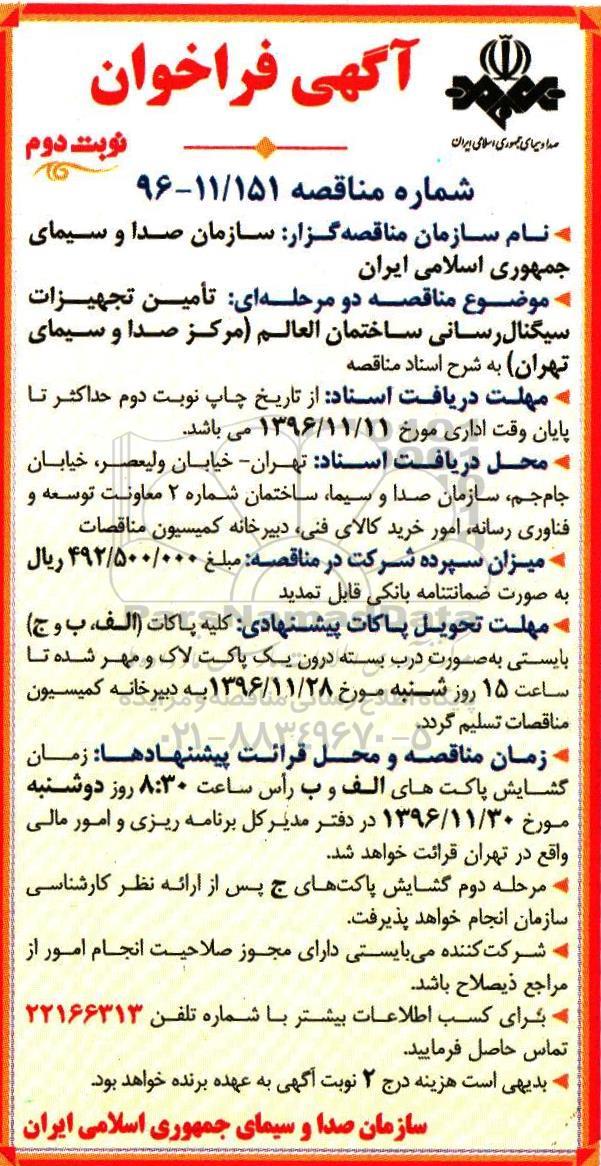 آگهی فراخوان
صدا و سیمای جمهوری اسلامی ایران
نوبت دوم
شماره مناقصه ۱۱/۱۵۱-۹۶
نام سازمان مناقصه‌گزار: سازمان صدا و سیمای
جمهوری اسلامی ایران
موضوع مناقصه دو مرحله‌ای: تأمین تجهیزات
سیگنال‌رسانی ساختمان العالم (مرکز صدا و سیمای
تهران) به شرح اسناد مناقصه
مهلت دریافت اسناد: از تاریخ چاپ نوبت دوم حداکثر تا
پایان وقت اداری مورخ ۱۳۹۶/۱۱/۱۱ می باشد.
محل دریافت اسناد: تهران- خیابان ولیعصر، خیابان
جام‌جم، سازمان صدا و سیما، ساختمان شماره ۲ معاونت توسعه و
فناوری رسانه، امور خرید کالای فنی، دبیرخانه کمیسیون مناقصات
میزان سپرده شرکت در مناقصه: مبلغ ۴۹۲/۵۰۰/۰۰۰ ریال
به صورت ضمانتنامه بانکی قابل تمدید
ParsNamadData
مهلت تحویل پاکات پیشنهادی: کلیه پاکات (الف، ب و ج)
بایستی به‌صورت درب بسته درون یک پاکت لاک و مهر شده تا
ساعت ۱۵ روز شنبه مورخ ۱۳۹۶/۱۱/۲۸ به دبیرخانه کمیسیون
پایگاه اطلاع رسانی مناقصه و مزایده
مناقصات تسلیم گردد.
۰۲۱-۸۸۳۴۹۶۷۰-۵
زمان مناقصه و محل قرائت پیشنهادها: زمان
گشایش پاکت های الف و ب رأس ساعت ۸:۳۰ روز دوشنبه
مورخ ۱۳۹۶/۱۱/۳۰ در دفتر مدیرکل برنامه ریزی و امور مالی
واقع در تهران قرائت خواهد شد.
مرحله دوم گشایش پاکت‌های ج پس از ارائه نظر کارشناسی
سازمان انجام خواهد پذیرفت.
شرکت‌کننده می‌بایستی دارای مجوز صلاحیت انجام امور از
مراجع ذیصلاح باشد.
برای کسب اطلاعات بیشتر با شماره تلفن ۲۲۱۶۶۳۱۳
تماس حاصل فرمایید.
بدیهی است هزینه درج ۲ نوبت آگهی به عهده برنده خواهد بود.
سازمان صدا و سیمای جمهوری اسلامی ایران